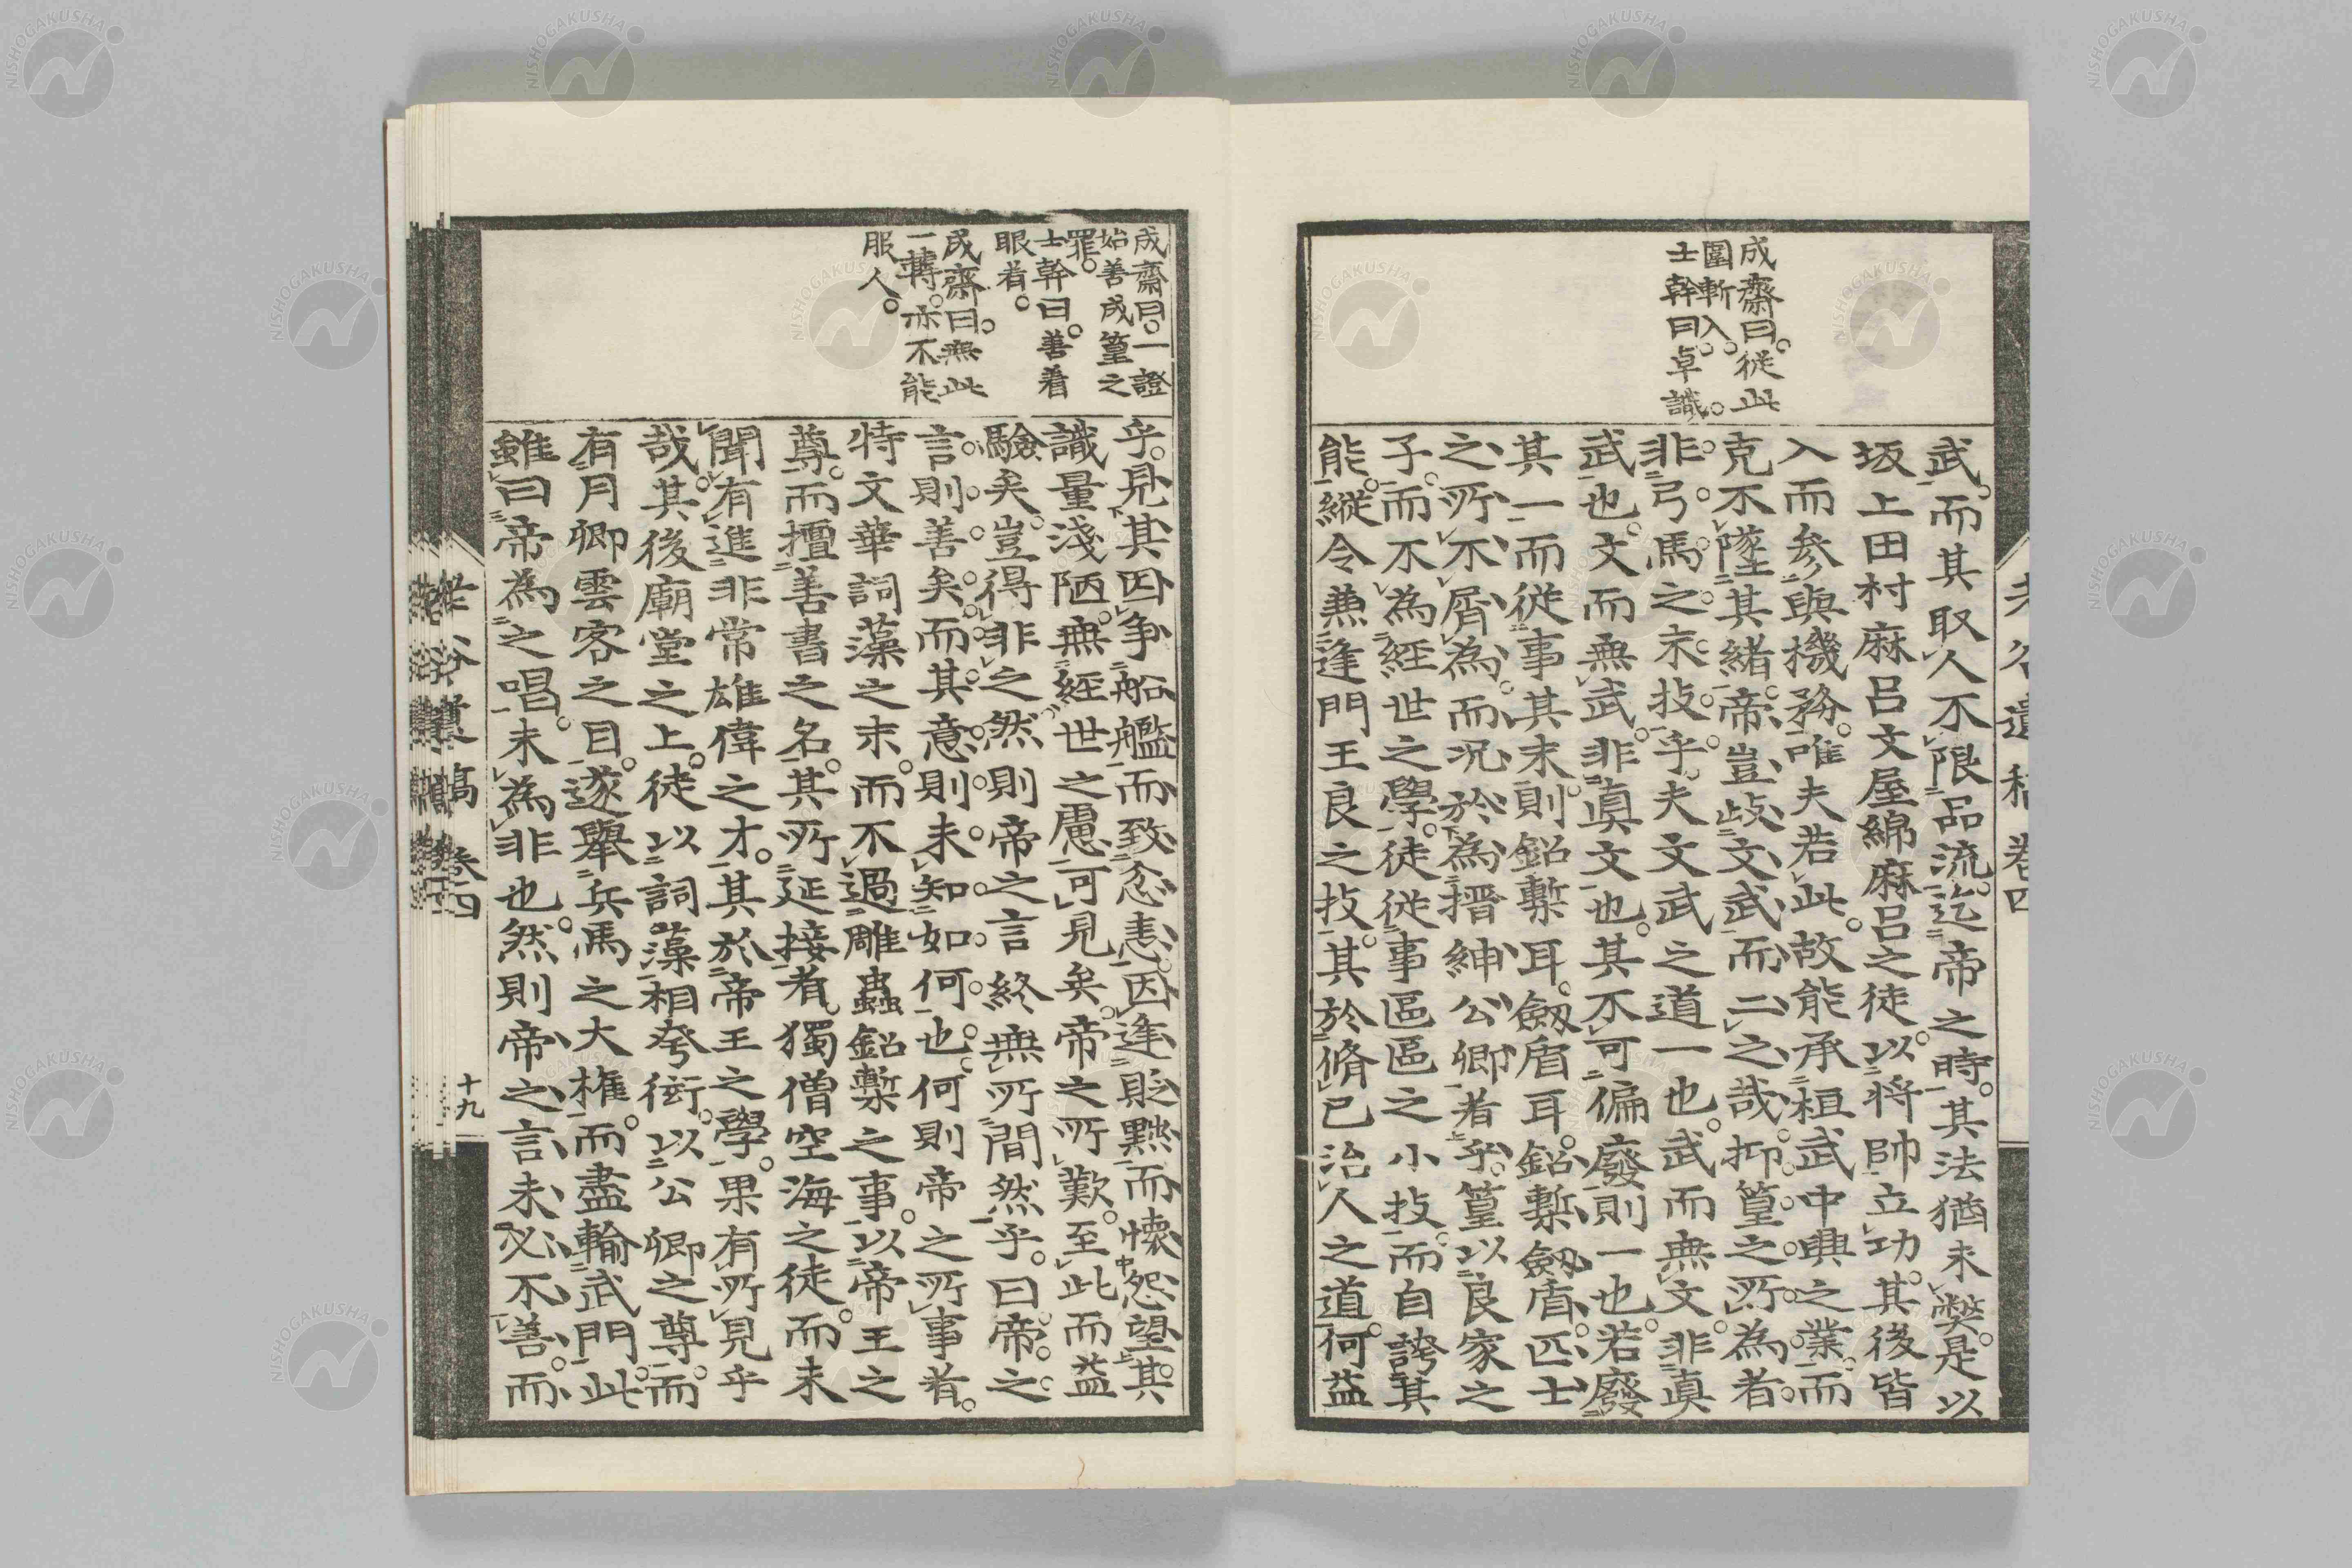 成齋曰。從此
圍斬入。
士幹曰卓識。
武。而其取人不限品流。迄帝之時。其法猶未弊。是以
坂上田村麻呂文屋綿麻呂之徒。以將帥立功。其後皆
入而參與機務。唯夫若此。故能承桓武中興之業。而
克不墜其緒。帝豈歧文武而二之哉。抑篁之所為者。
非弓馬之末技乎。夫文武之道一也。武而無文。非眞
武也。文而無武。非眞文也。其不可偏廢則一也。若廢
其一而從事其末。則鉛槧耳。劔盾耳。鉛槧劔盾。匹士
之所不屑為。而況於為搢紳公卿者乎。篁以良家之
子。而不為經世之學。徒從事區區之小技。而自誇其
能。縱令兼逢門王良之技。其於脩已治人之道。何益
成齋曰。一證
始善成篁之
罪。
士幹曰。善着
眼者。
成齋曰。無此
一轉。亦不能
服人。
乎。見其因爭船艦而致忿恚。因逢貶黜而懷怨望。其
識量淺陋。無經世之慮。可見矣。帝之所歎。至此而益
驗矣。豈得非之。然則帝之言。終無所間然乎。曰帝之
言。則善矣。而其意。則未知如何也。何則帝之所事者。
特文華詞藻之末。而不過雕蟲鉛槧之事。以帝王之
尊。而擅善書之名。其所延接者。獨僧空海之徒。而未
聞有進非常雄偉之才。其於帝王之學。果有所見乎
哉。其後廟堂之上。徒以詞藻相夸衒。以公卿之尊。而
有月卿雲客之目。遂舉兵馬之大權。而盡輸武門。此
雖曰帝為之唱。未為非也。然則帝之言。未必不善。而
十九